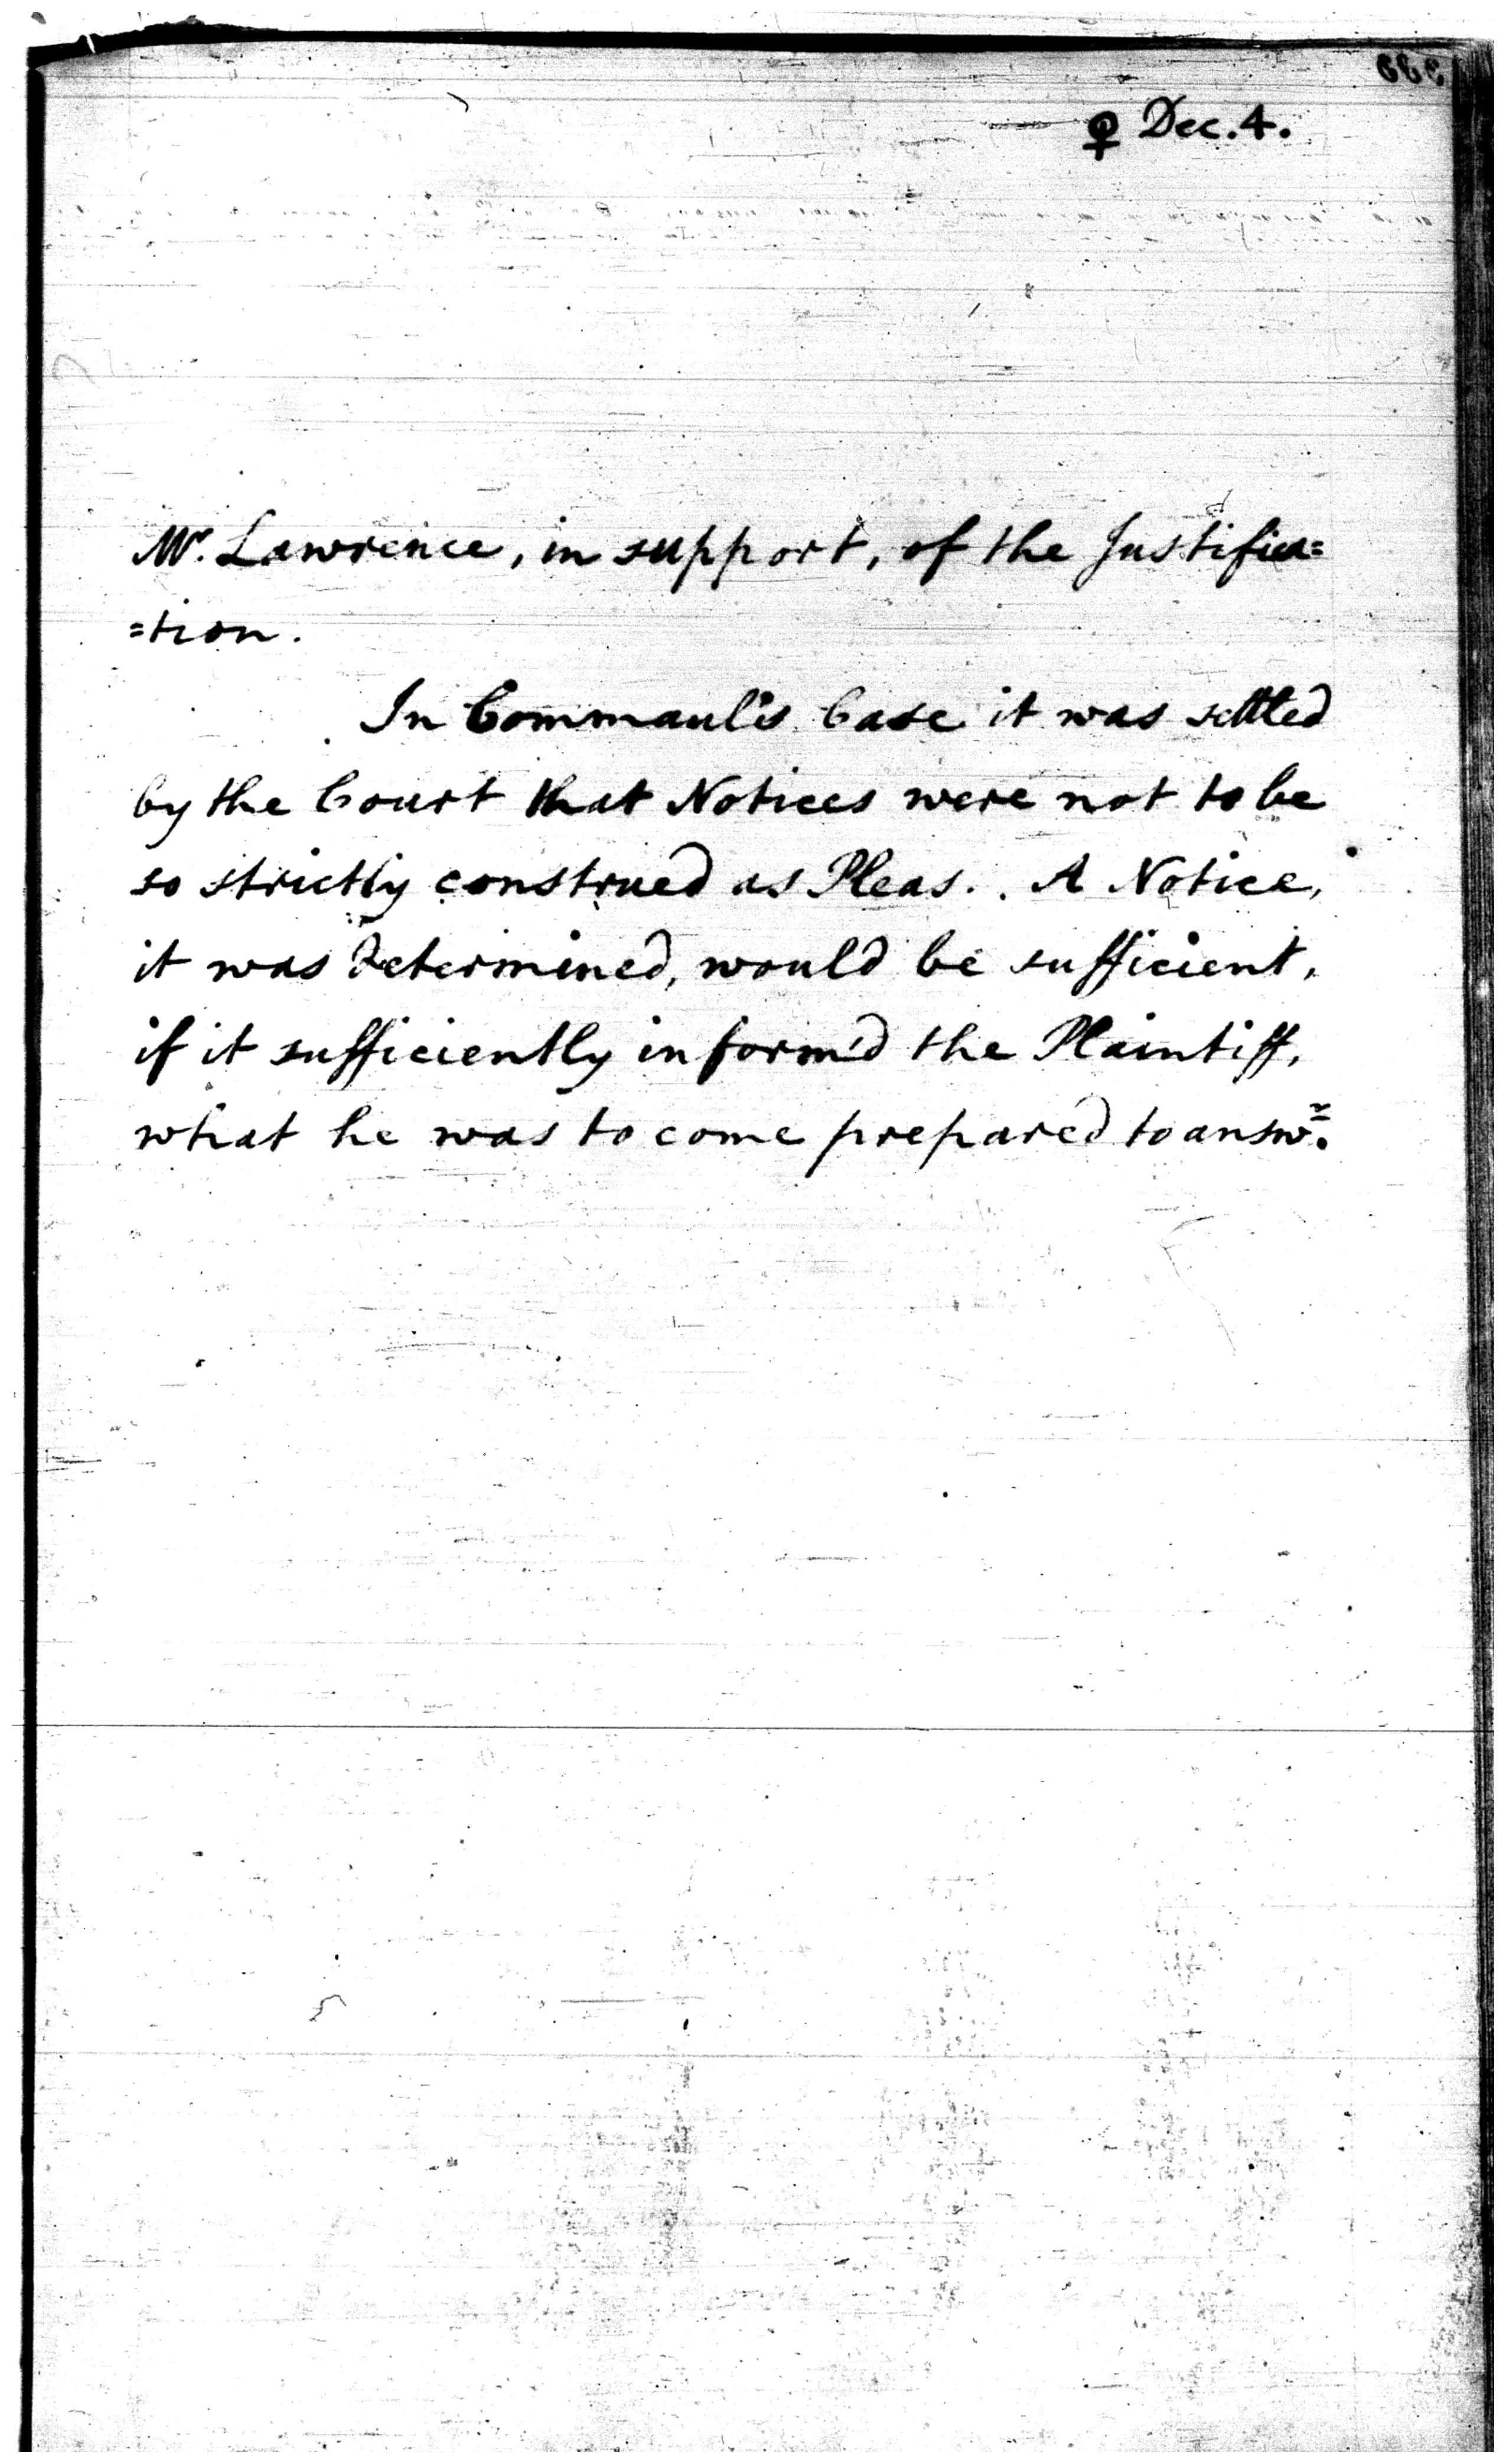 ♀ Dec. 4.
Mr. Lawrence, in support, of the Justifica=
=tion.
In Commaul's Case it was settled
by the Court that Notices were not to be
so strictly construed as Pleas. A Notice,
it was determined, would be sufficient,
if it sufficiently inform'd the Plaintiff,
what he was to come prepared to answr.